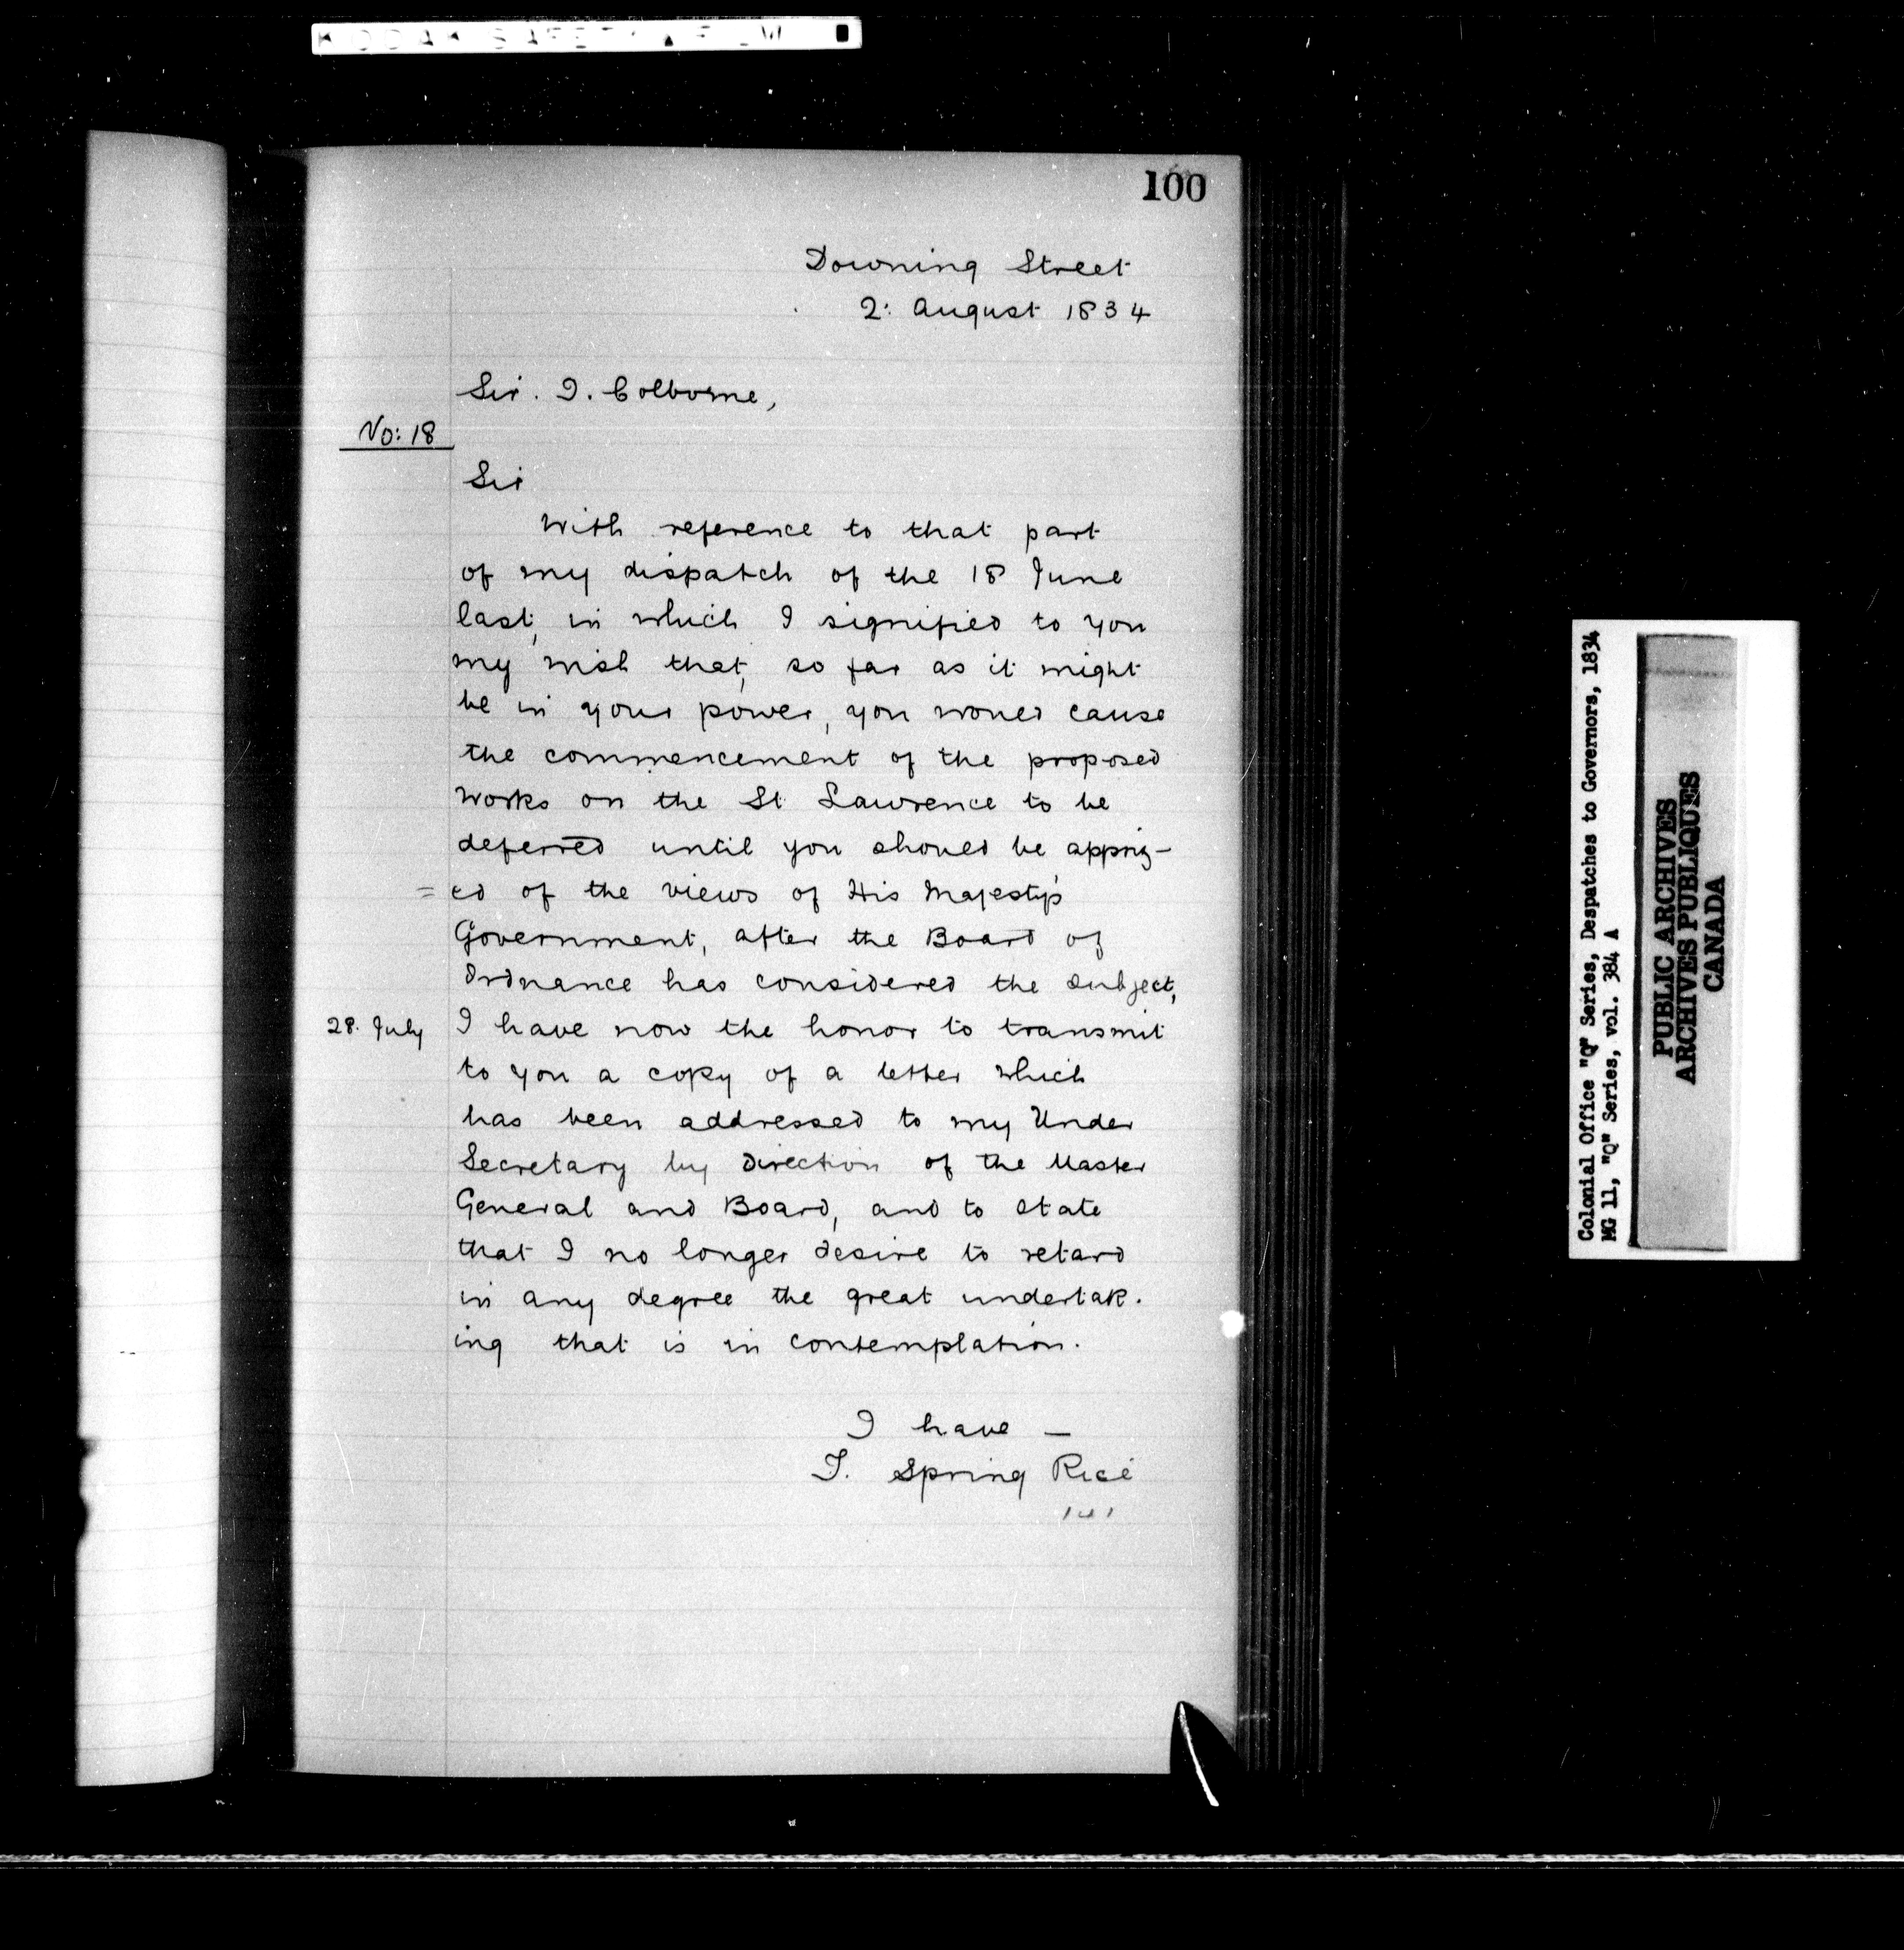 KODAK SAFETY ▲ FILM
100
Downing Street
2: August 1834
Sir. J. Colborne,
No: 18
Sir
With reference to that part
of my dispatch of the 18 June
last, in which I signified to you
my wish that, so far as it might
be in your power, you would cause
the commencement of the proposed
works on the St Lawrence to be
deferred until you should be appriz-
=ed of the views of His Majesty's
Government, after the Board of
Ordnance has considered the subject,
28. July I have now the honor to transmit
to you a copy of a letter which
has been addressed to my Under
Secretary by direction of the Master
General and Board, and to state
that I no longer desire to retard
in any degree the great undertak.
ing that is in contemplation.
I have —
T. Spring Rice
Colonial Office "Q" Series, Despatches to Governors, 1834
MG 11, "Q" Series, vol. 384 A
PUBLIC ARCHIVES
ARCHIVES PUBLIQUES
CANADA